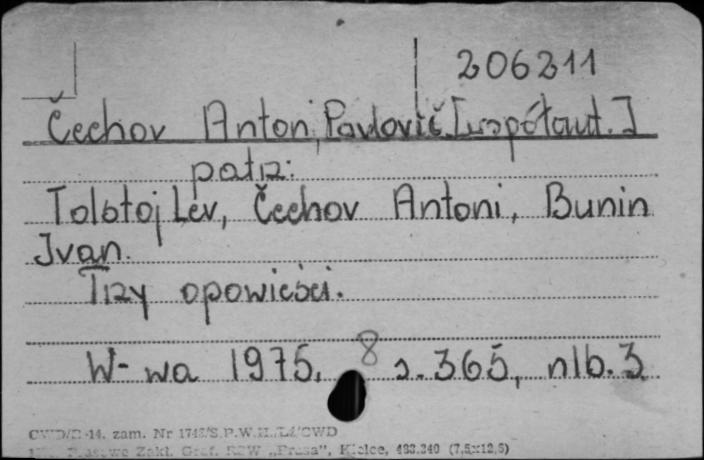 206211
Čechov Anton Pavlovič [współaut.]
patrz:
Tolstoj Lev, Čechov Antoni, Bunin
Ivan.
Trzy opowieści.
W-wa 1975, 8 s. 365, nlb. 3
-14. zam. Nr S.P.W.
Zakł. Graf. RSW „Prasa”, Kielce, (7,5x12,5)